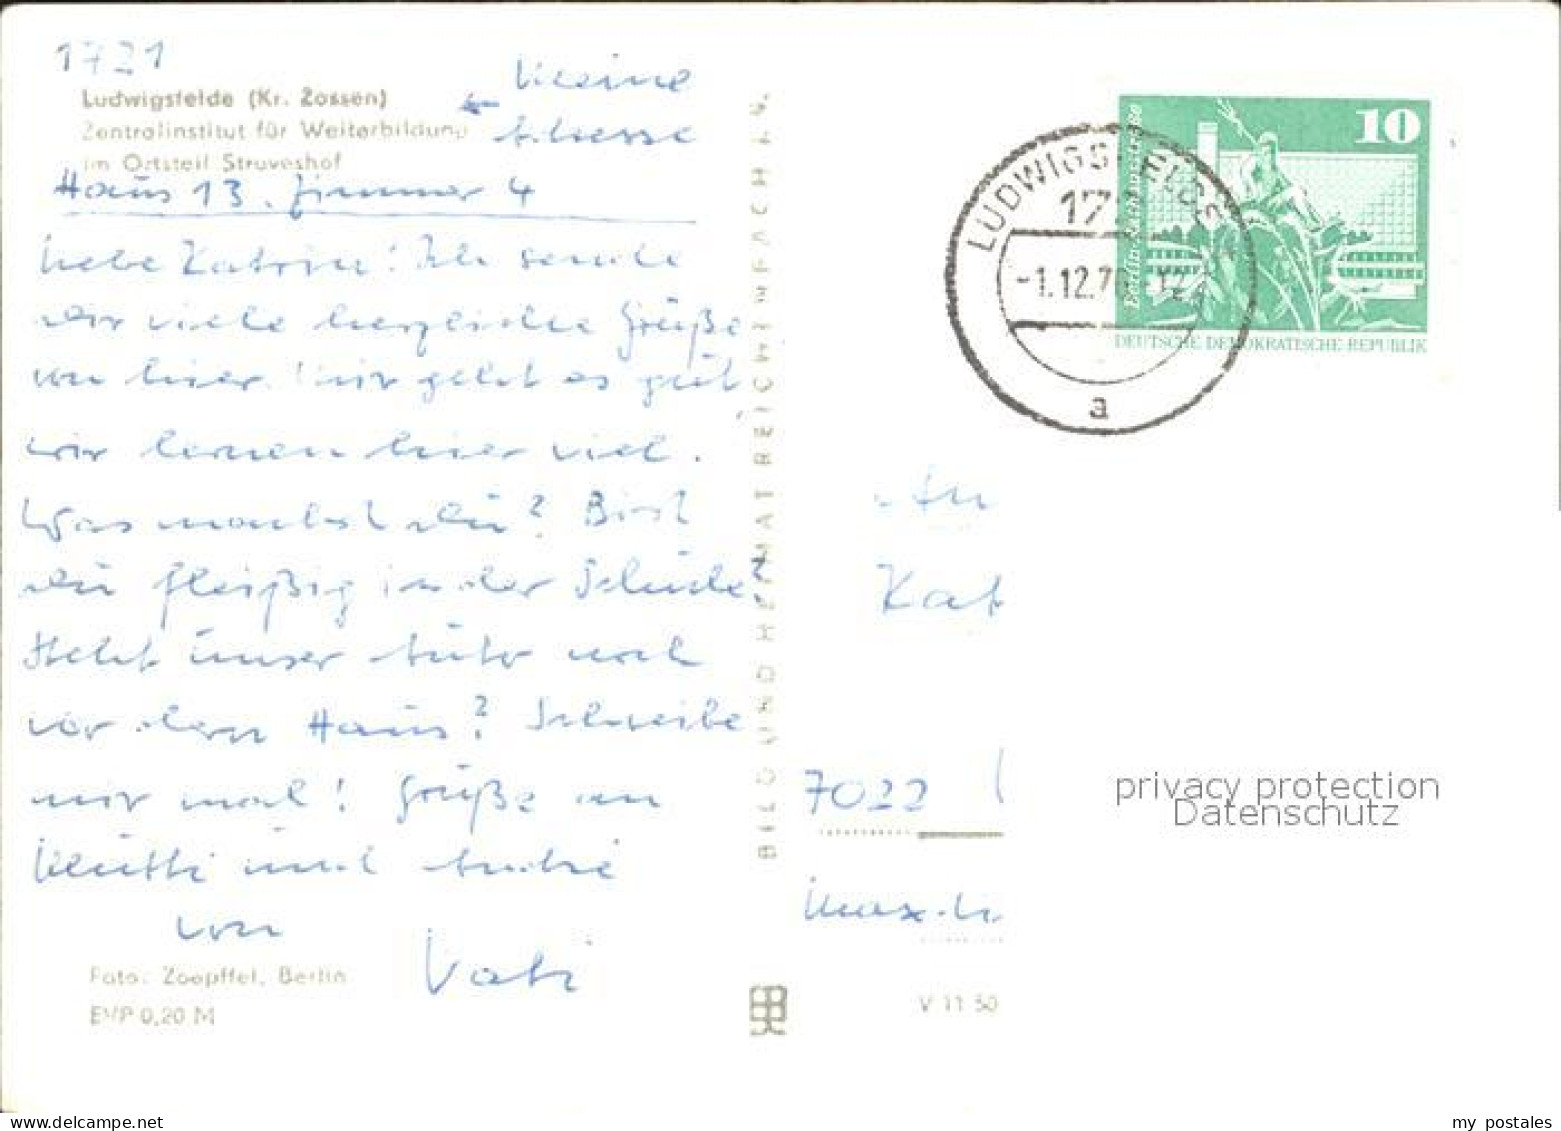 1721
Ludwigsfelde (Kr. Zossen)
Zentralinstitut für Weiterbildung
im Ortsteil Struveshof
← Meine
Adresse
Haus 13. Zimmer 4
Liebe Katrin! Ich sende
Dir viele herzliche Grüße
von hier. Mir geht es gut,
wir lernen hier viel.
Was machst Du? Bist
Du fleißig in der Schule?
Steht unser Auto noch
vor dem Haus? Schreibe
mir mal! Grüße an
Mutti und André
von
Vati
Foto: Zoepffel, Berlin
EVP 0,20 M
BILD UND HEIMAT REICHENBACH i. V.
V 11 50
10
Berlin, Leninplatz
DEUTSCHE DEMOKRATISCHE REPUBLIK
LUDWIGSFELDE
17
-1.12.7
12
a
An
Kat
7022
Max-Li
privacy protection
Datenschutz
my postales